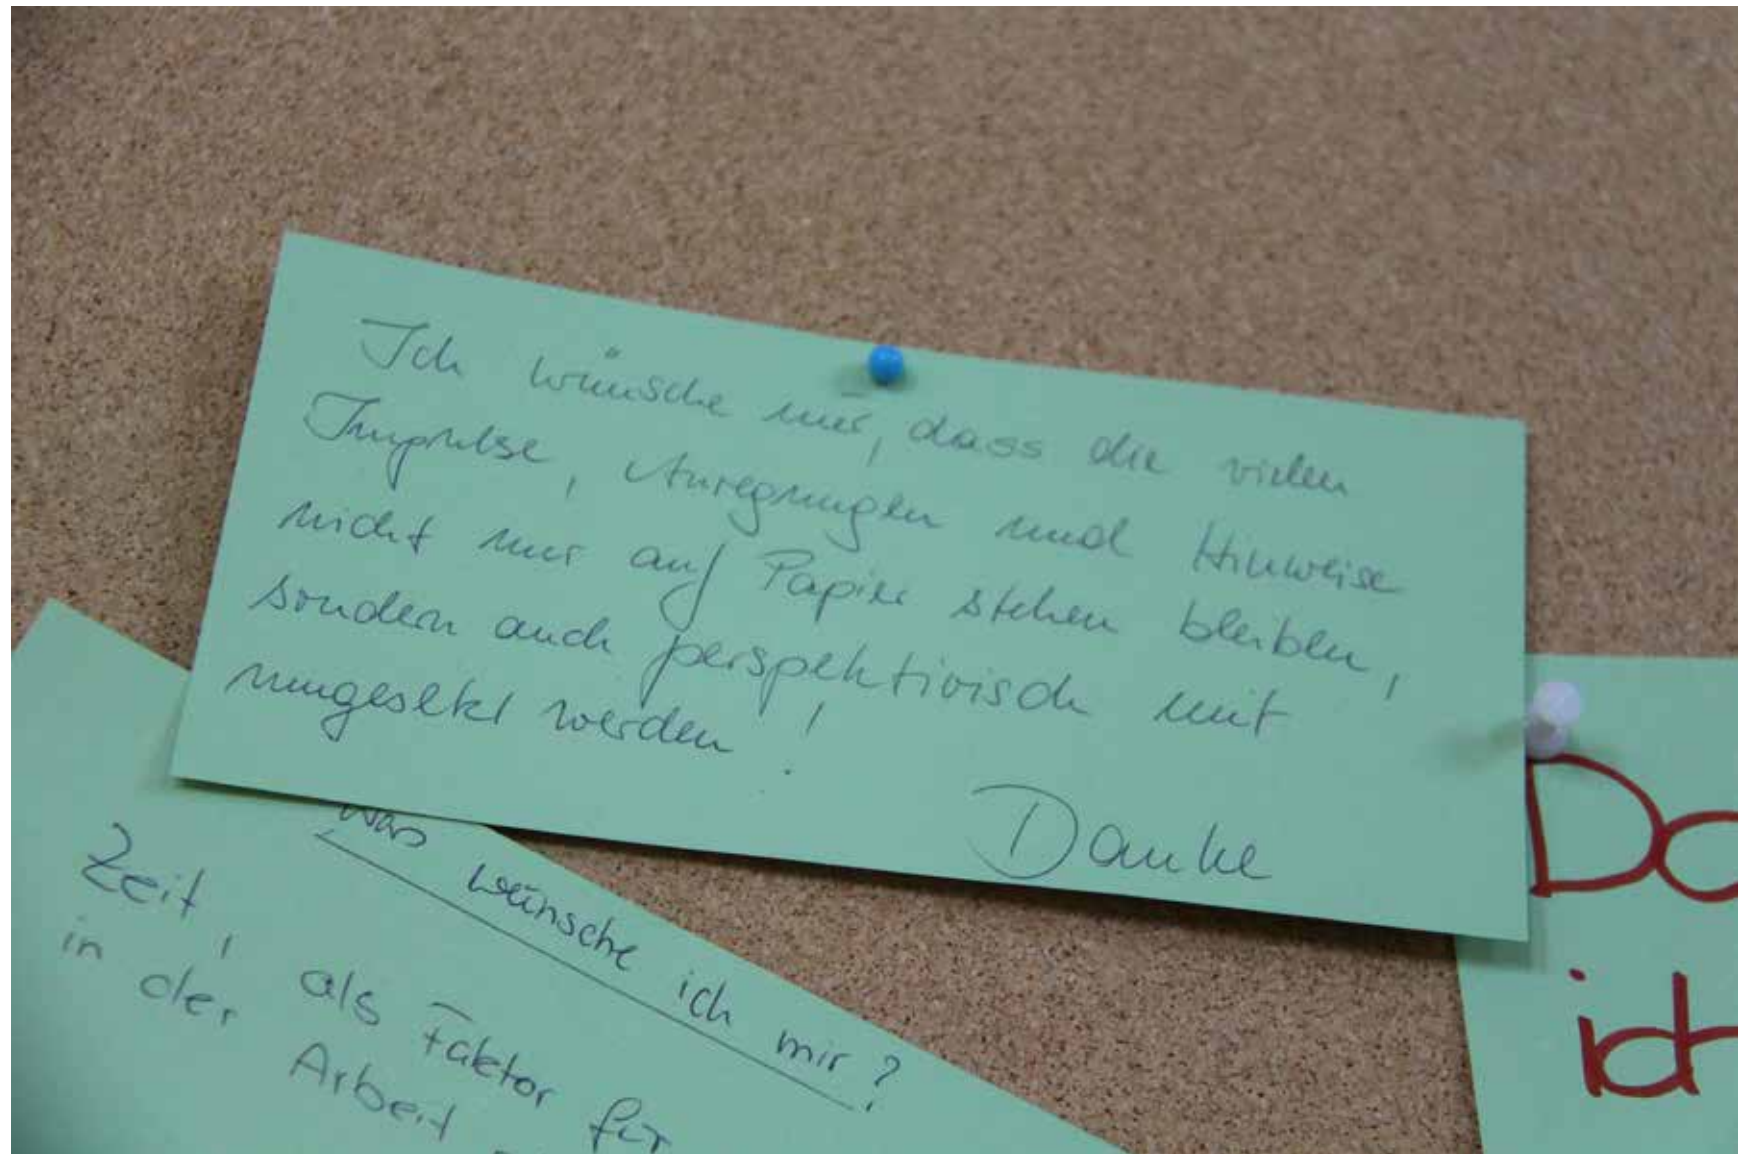 Ich wünsche mir, dass die vielen
Impulse, Anregungen und Hinweise
nicht nur auf Papier stehen bleiben,
sondern auch perspektivisch mit
umgesetzt werden!
Danke
Was wünsche ich mir?
Zeit, als Faktor für
in der Arbeit
Da
ich